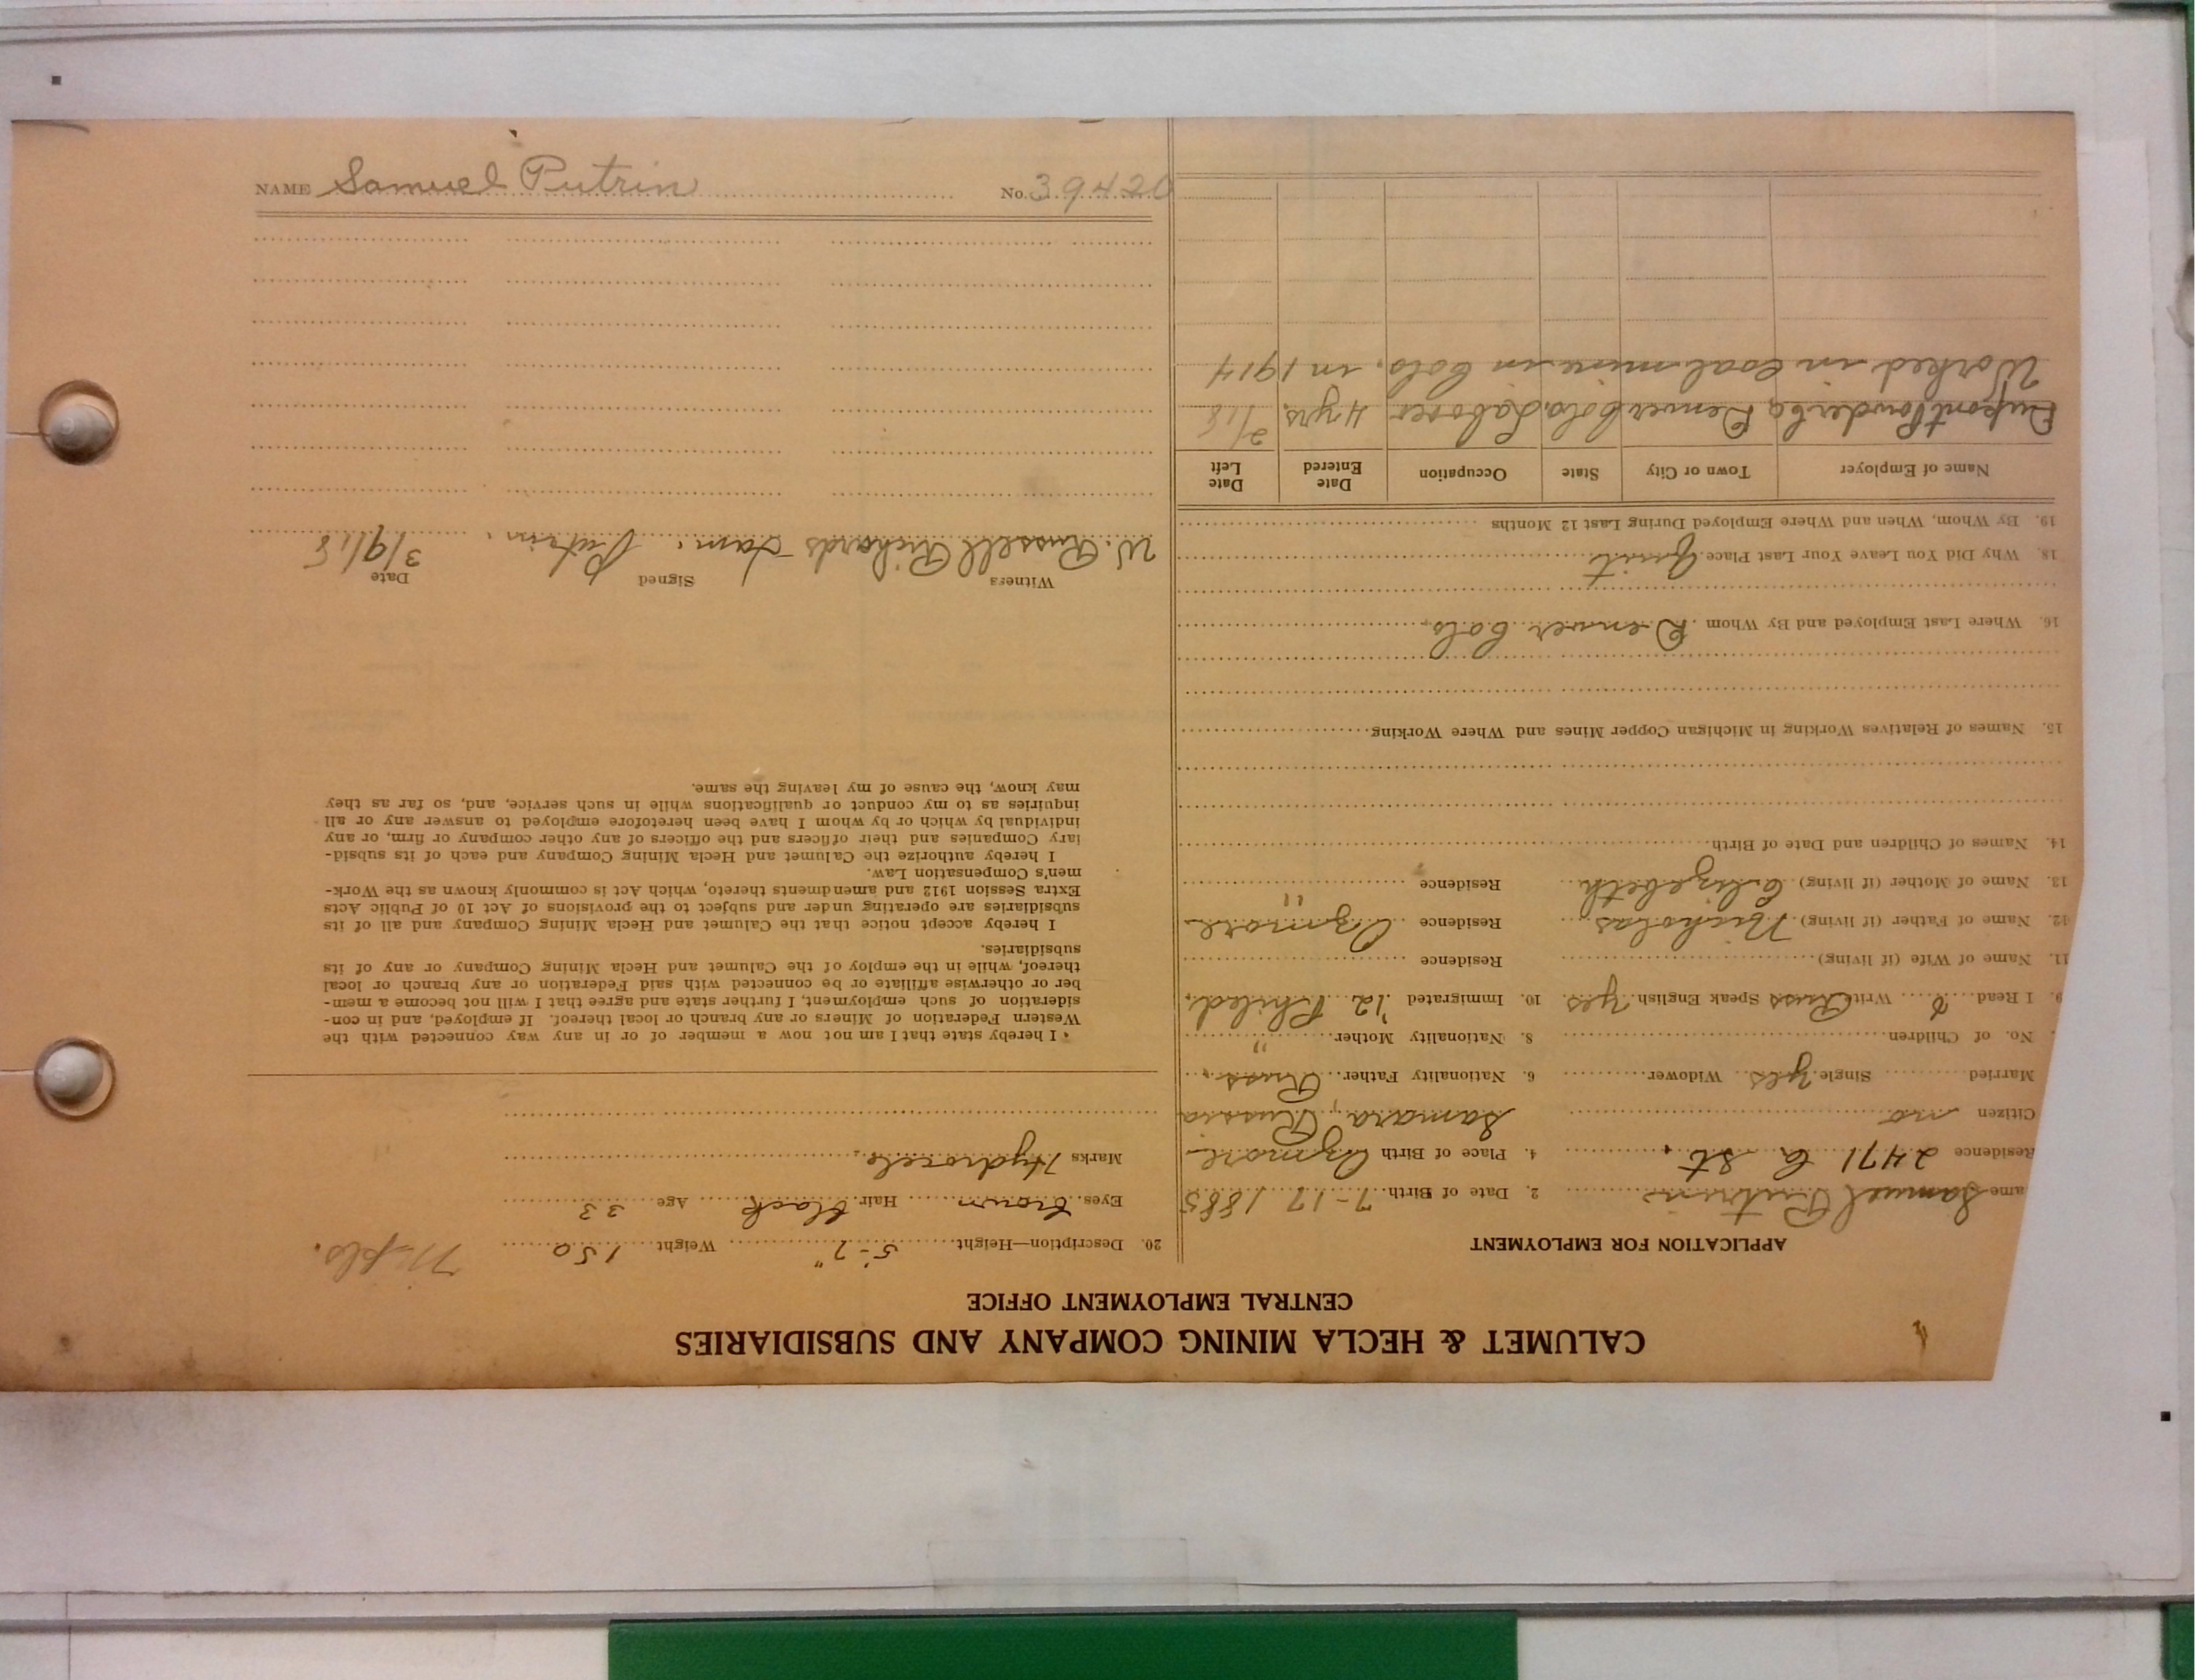 CALUMET & HECLA MINING COMPANY AND SUBSIDIARIES
CENTRAL EMPLOYMENT OFFICE
APPLICATION FOR EMPLOYMENT
ame Samuel Putrin 2. Date of Birth 7-17 1885
Residence 2471 C St. 4. Place of Birth Ozmore
Citizen no Samara, Russia
Married Single yes Widower 6. Nationality Father Russ.
No. of Children 8. Nationality Mother "
9. I Read Write Russ Speak English yes 10. Immigrated '12 Philed.
11. Name of Wife (if living) Residence
12. Name of Father (if living) Nicholas Residence Ozmore
13. Name of Mother (if living) Elizebeth Residence "
14. Names of Children and Date of Birth
15. Names of Relatives Working in Michigan Copper Mines and Where Working
16. Where Last Employed and By Whom Denver Colo.
18. Why Did You Leave Your Last Place Quit
19. By Whom, When and Where Employed During Last 12 Months
Name of Employer Town or City State Occupation Date Entered Date Left
Dupont Powder Co Denver Colo. Laborer 4 yrs. 2/18
Worked in Coal mine in Colo. in 1914
20. Description—Height 5-7" Weight 150
Eyes brown Hair black Age 33
Marks Hydrocele.
I hereby state that I am not now a member of or in any way connected with the
Western Federation of Miners or any branch or local thereof. If employed, and in con-
sideration of such employment, I further state and agree that I will not become a mem-
ber or otherwise affiliate or be connected with said Federation or any branch or local
thereof, while in the employ of the Calumet and Hecla Mining Company or any of its
subsidiaries.
I hereby accept notice that the Calumet and Hecla Mining Company and all of its
subsidiaries are operating under and subject to the provisions of Act 10 of Public Acts
Extra Session 1912 and amendments thereto, which Act is commonly known as the Work-
men's Compensation Law.
I hereby authorize the Calumet and Hecla Mining Company and each of its subsid-
iary Companies and their officers and the officers of any other company or firm, or any
individual by which or by whom I have been heretofore employed to answer any or all
inquiries as to my conduct or qualifications while in such service, and, so far as they
may know, the cause of my leaving the same.
Witness Signed Date
W. Russell Richards Sam. Putrin. 3/9/18
NAME Samuel Putrin No. 39420